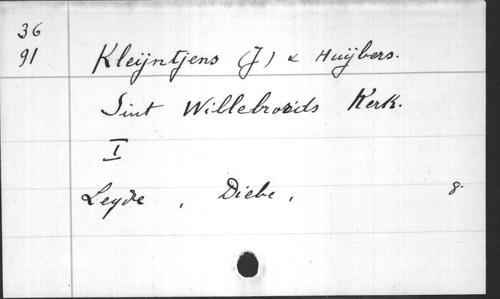 36
91
Kleijntjens (J) & Huijbers.
Sint Willebrords Kerk.
I
Leyde , Diebe , 8.